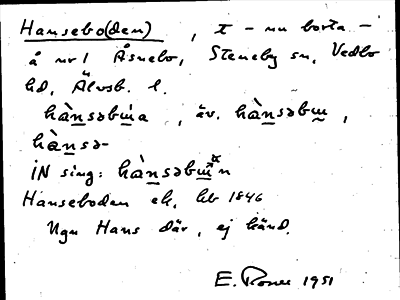 Hansebo(den), t - nu borta -
å nr 1 Åsnebo, Steneby sn, Vedbo
hd, Älvsb. l.
hànsəbɯ́a, äv. hànsəbɯ,
hànsə-
iN sing: hànsəbɯ̀n
Hanseboden ek. kb 1846
Ngn Hans där, ej känd.
E. 1951